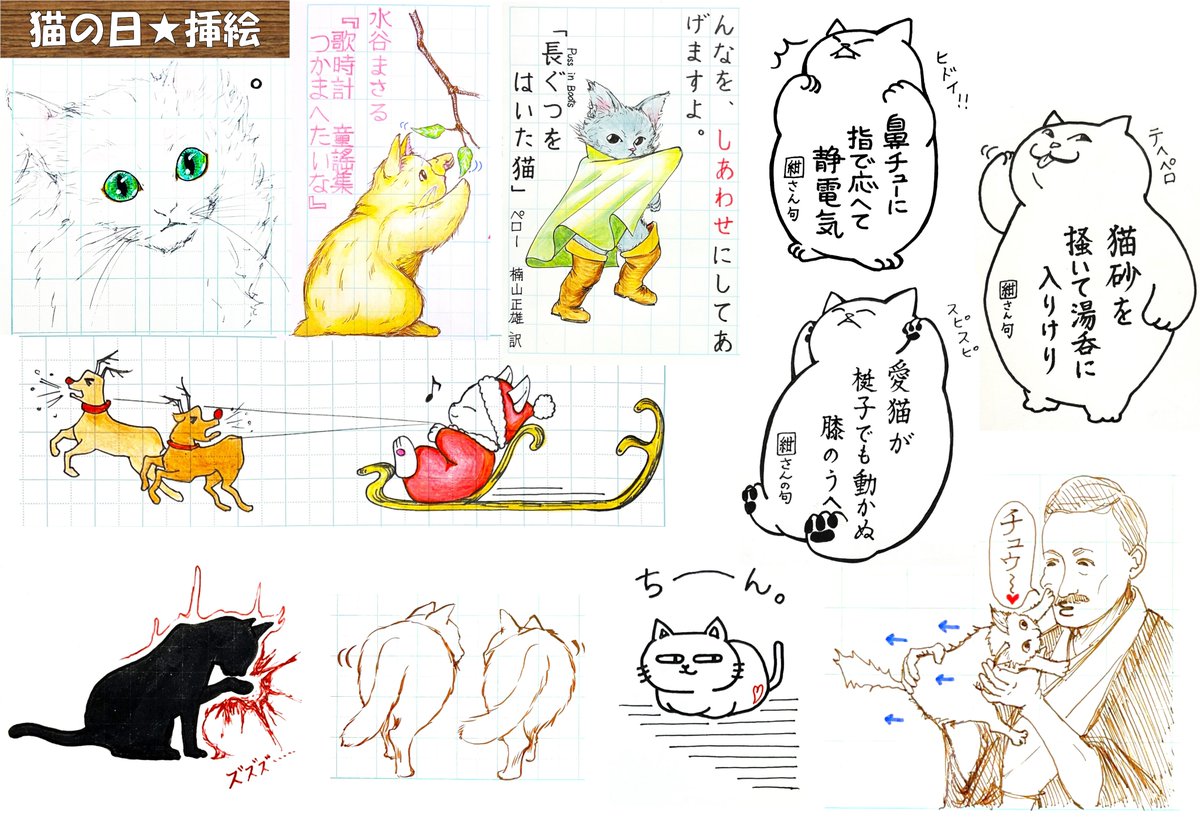 猫の日★挿絵
水谷まさる
『歌時計 童謡集
つかまへたいな』
んなを、しあわせにしてあ
げますよ。
Puss in Boots
「長ぐつを
はいた猫」
ペロー 楠山正雄 訳
ヒドイ!!
鼻チューに
指で応へて
静電気
紺さん句
テヘペロ
猫砂を
掻いて湯呑に
入りけり
紺さん句
スピスピ
愛猫が
梃子でも動かぬ
膝のうへ
紺さんの句
ズズズ……
ちーん。
チュウ〜♥